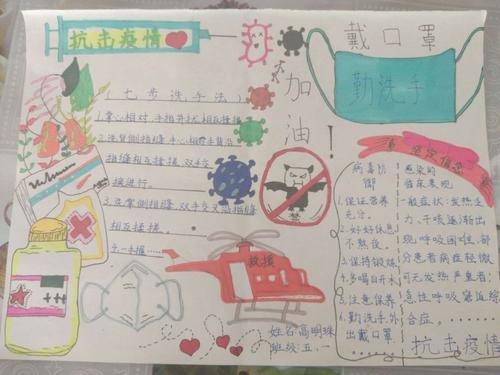 抗击疫情
加油！
戴口罩
勤洗手
（七步洗手法）
1.掌心相对，手指并拢相互揉搓
2.洗背侧指缝 手心相对手背沿
指缝相互揉搓，双手交
换进行。
3.洗掌侧指缝 双手交叉沿指缝
相互揉搓。
4.一手握……
禁
救援
坚定信念
病毒防
御
1.保证营养
充分。
2.好好休息
不熬夜。
3.保持锻炼
4.多喝白开水
5.注意保养
6.勤洗手外
出戴口罩
感染的
临床表现
一般症状：发热乏
力、干咳逐渐出
现呼吸困难，部
分患者病症轻微
可无发热，严重者：
急性呼吸窘迫综
合症。……
姓名：高明珠
班级：五.一
抗击疫情